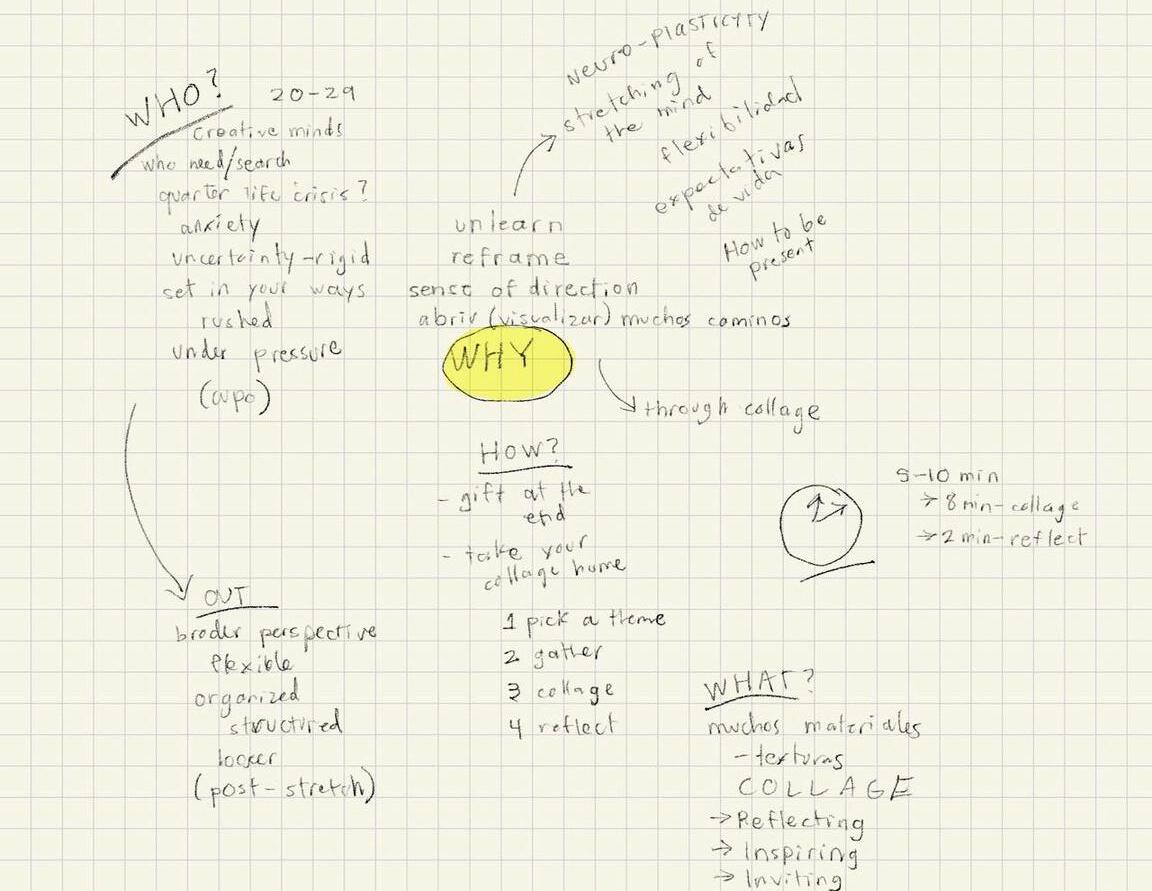 WHO?
20-29
Creative minds
who need/search
quarter life crisis?
anxiety
uncertainty-rigid
set in your ways
rushed
under pressure
(cupo)
Neuro-plasticity
stretching of
the mind
flexibilidad
expectativas
de vida
How to be
present
unlearn
reframe
sense of direction
abrir (visualizar) muchos caminos
WHY
through collage
HOW?
- gift at the
end
- take your
collage home
1 pick a theme
2 gather
3 collage
4 reflect
5-10 min
→ 8 min-collage
→ 2 min-reflect
OUT
broder perspective
flexible
organized
structured
looser
(post-stretch)
WHAT?
muchos materiales
- texturas
COLLAGE
→ Reflecting
→ Inspiring
→ Inviting